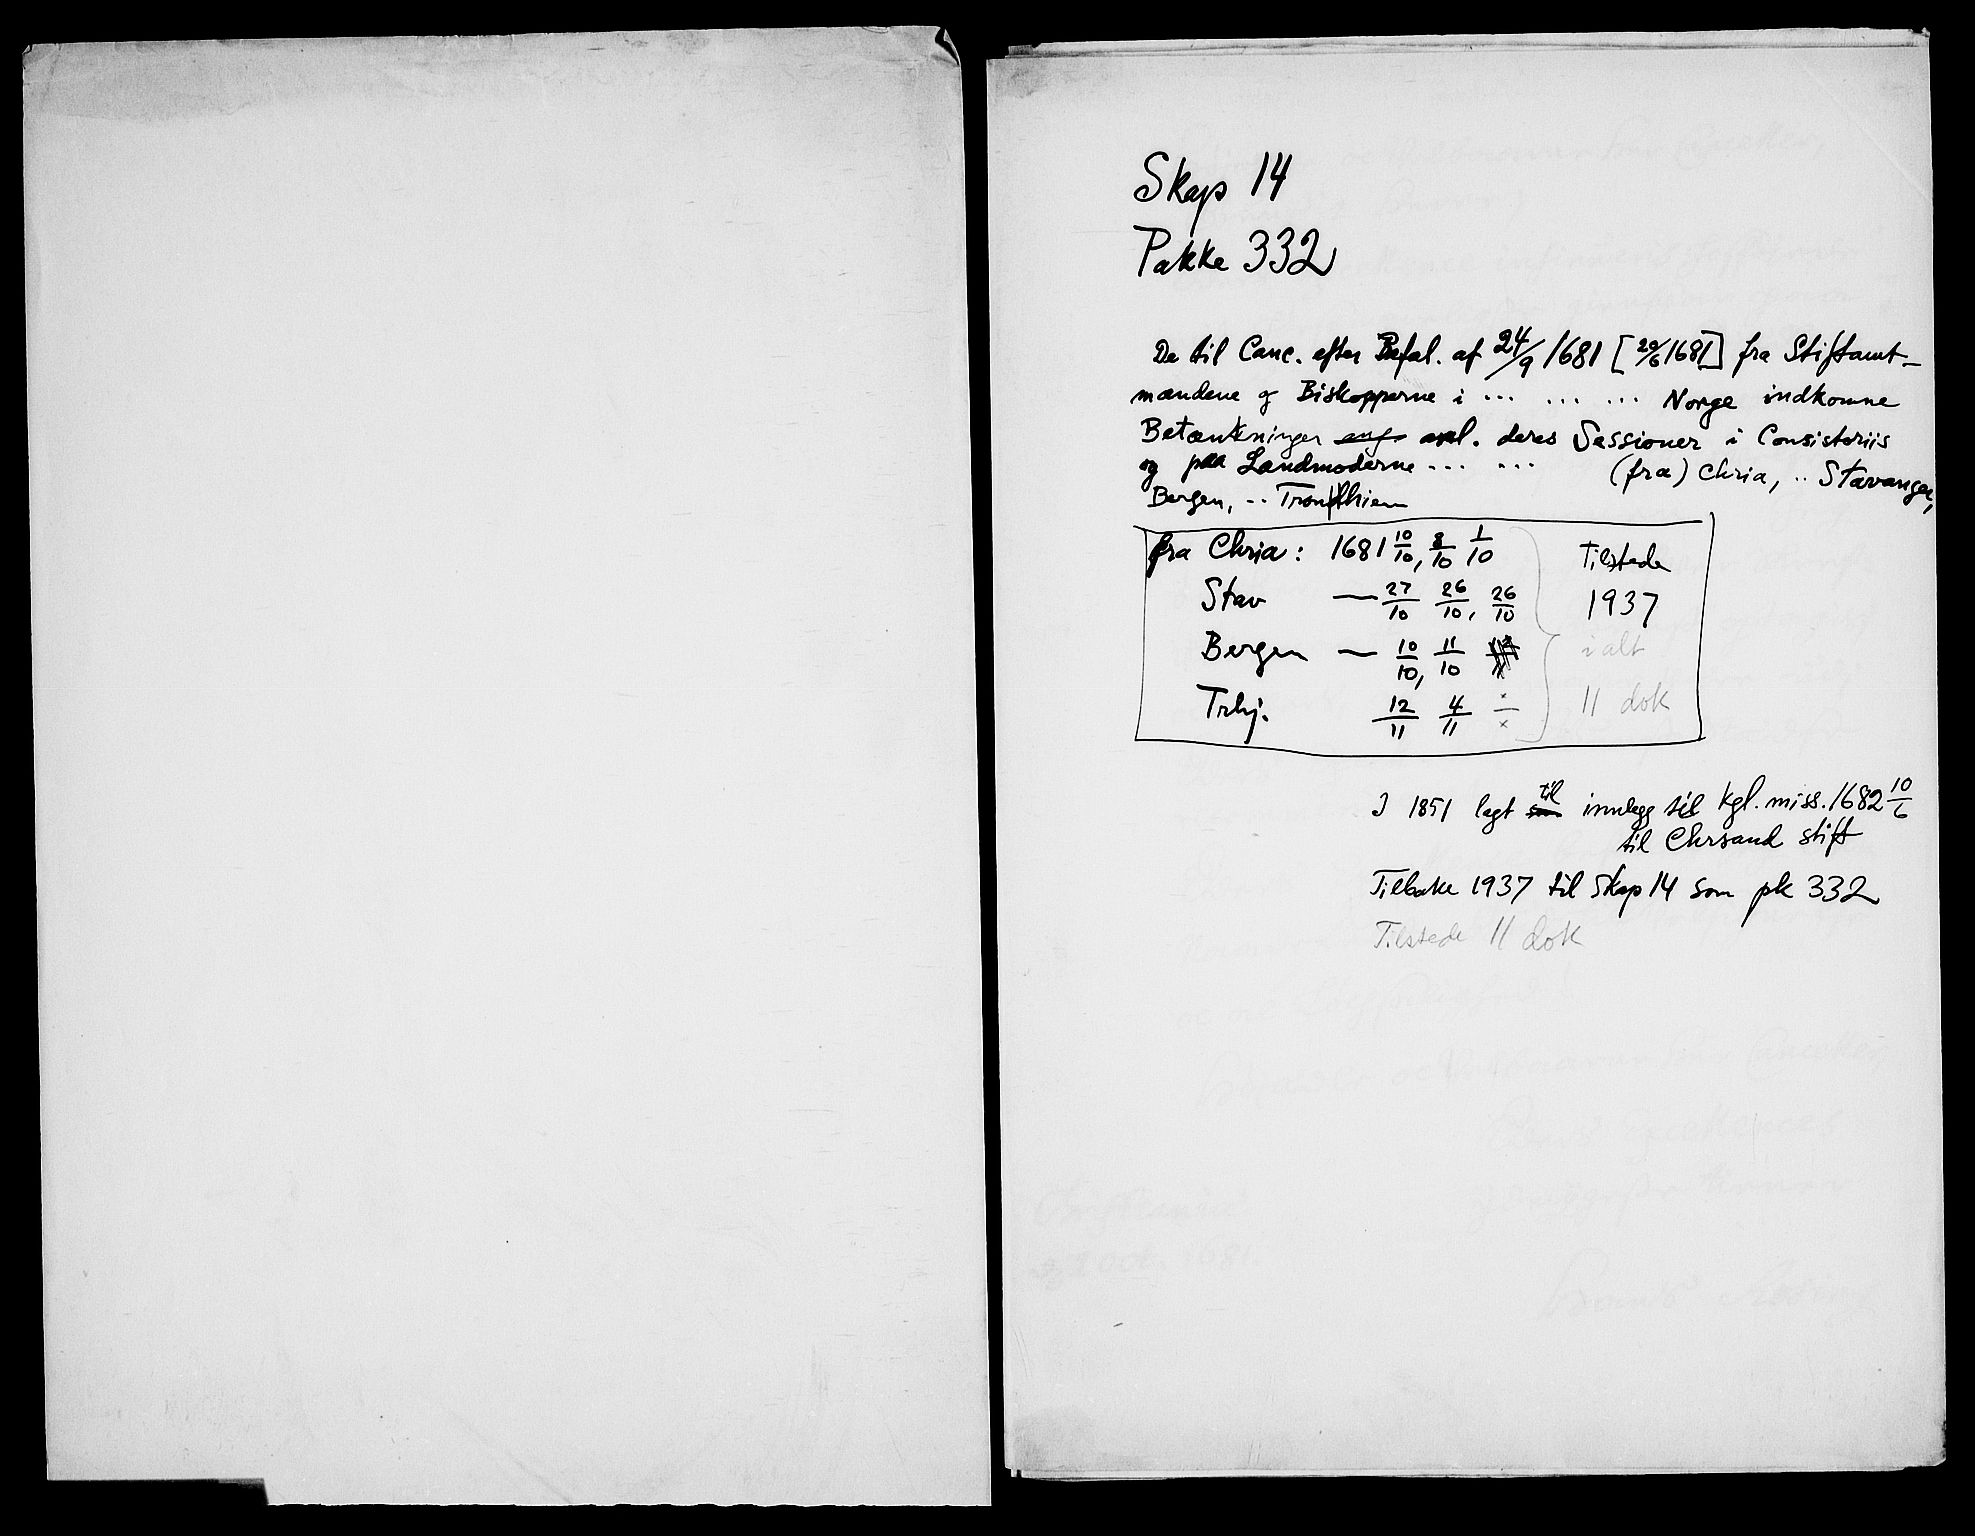 Skap 14
Pakke 332
De til Canc. efter Befal. af 24/9 1681 [20/6 1681] fra Stiftamt-
mændene og Biskopperne i ... ... ... Norge indkomne
Betænkninger ang. anl. deres Sessioner i Consistoriis
og paa Landmoderne ... ... (fra) Chria, .. Stavanger,
Bergen, .. Trondhiem
fra Chria: 1681 10/10, 8/10 1/10 Tilstede
Stav — 27/10 26/10, 26/10 1937
Bergen — 10/10, 11/10 i alt
Trhj. 12/11 4/11 ×/× 11 dok
I 1851 lagt til innlegg til kgl. miss. 1682 10/6
til Chrsand stift
Tilbake 1937 til Skap 14 som pk 332
Tilstede 11 dok